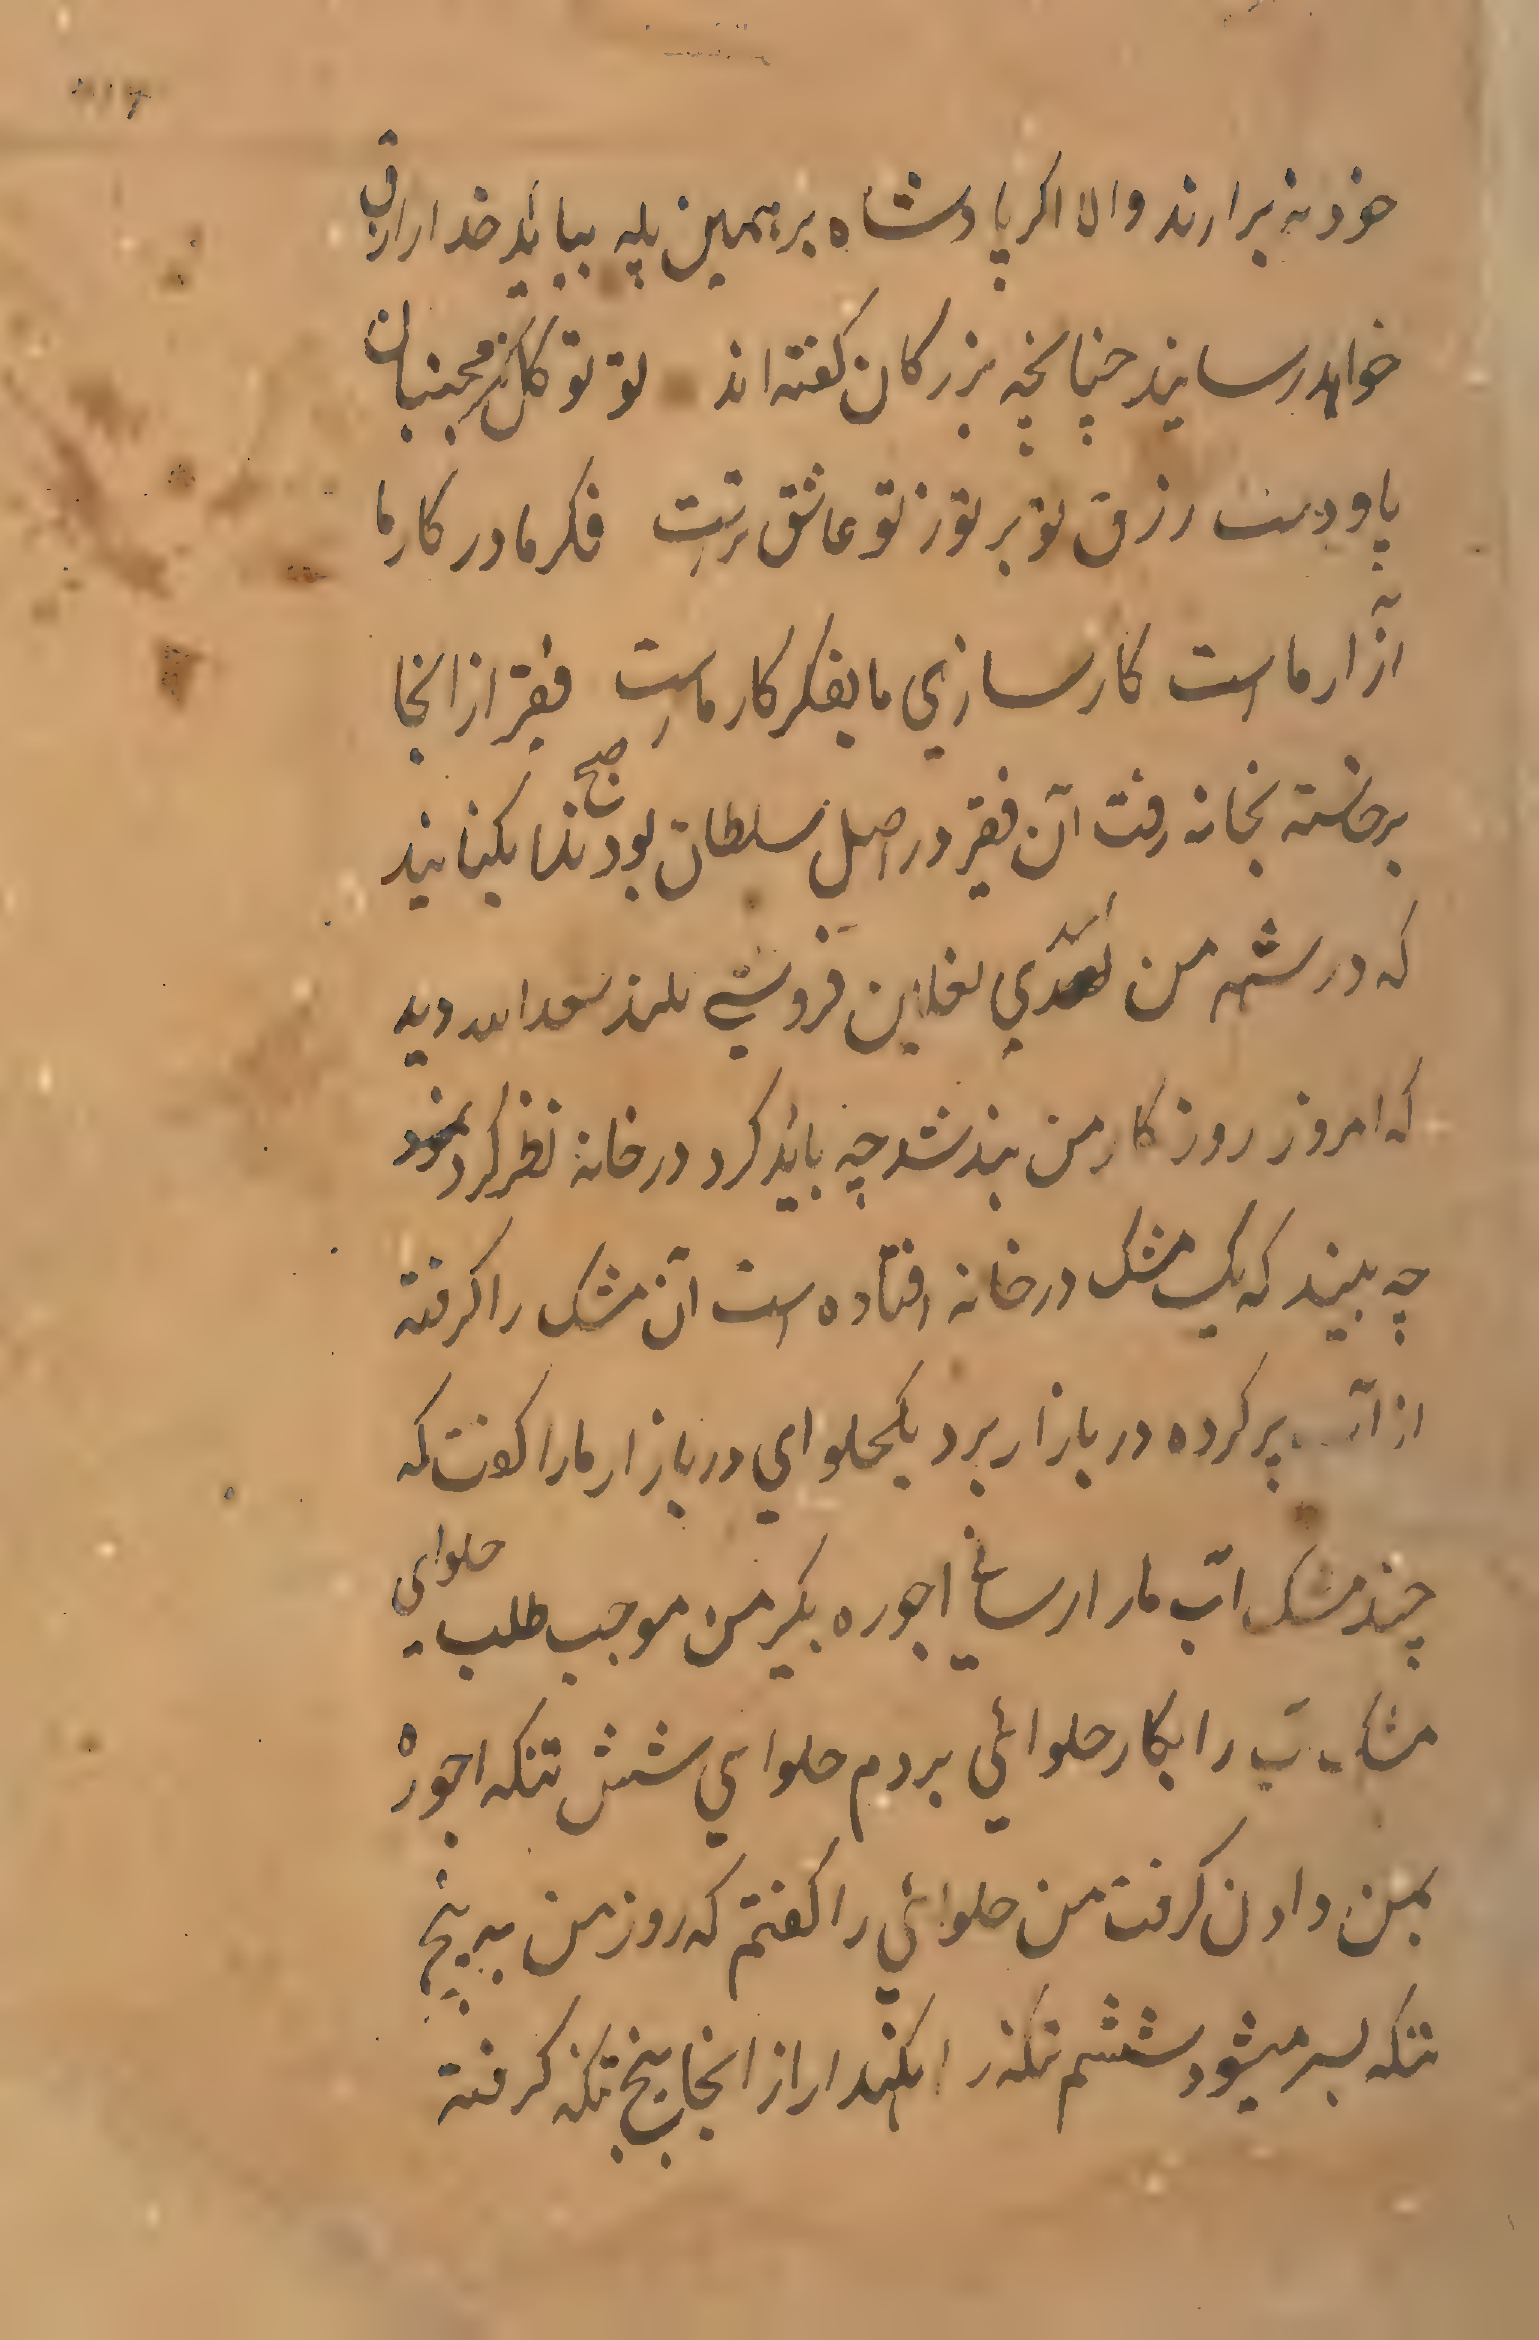 خود نه برارند والا اکر پادشاه بر همین پله بیاید خدا رازق
خواهد رسانید چنانچه بزرکان کفته اند تو توکل کن مجنبان
پا و دست رزق تو بر تو ز تو عاشق ترست فکر ما در کار ما
آزار ما است کارسازی ما بفکر کار ماست فقیر از انجا
برخاسته بخانه رفت آن فقیر در اصل سلطان بود صبح ندا بکنانید
که در شهر من نعلین فروشی سعد الله دید
که امروز روزکار من بند شد چه باید کرد در خانه نظر کرد
چه بیند که یک مشک در خانه افتاده است آن مشک را کرفته
از آب پر کرده در بازار برد یکحلوای در بازار مارا کفت که
چند مشک آب مارا رسانی اجوره بکیر من موجب طلب حلوای
مشک آب را بکار حلوائی بردم حلوای شش تنکه اجوره
بمن دادن کرفت من حلوائی را کفتم که روز من به پنج
تنکه بسر میشود ششم تنکه را نکهدار از انجا پنج تنکه کرفته